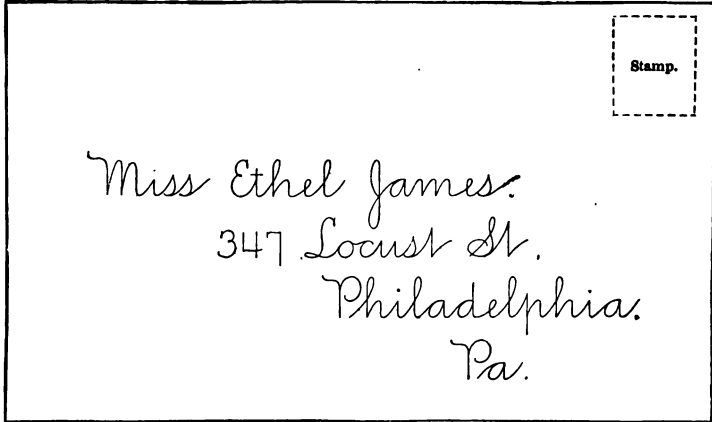 Stamp.
Miss Ethel James.
347 Locust St.
Philadelphia.
Pa.